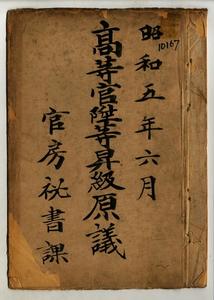 昭和五年六月
10167
高等官陞等昇級原議
官房祕書課